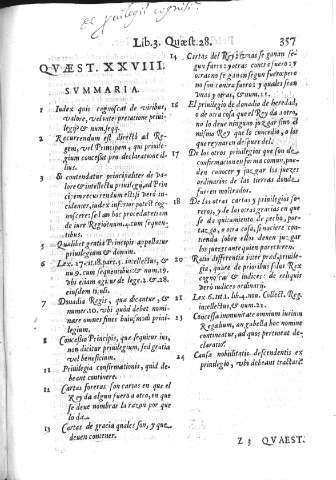 de privilegij cognitio.
Lib.3. Quæst.28. 357
QVÆST. XXVIII.
SVMMARIA.
1 Iudex quis cognoscat de viribus,
valore, vel interpretatione privi-
legij & num.seqq.
2 Recurrendum est directò ad Re-
gem, vel Principem, qui privile-
gium concessit pro declaratione il-
lius.
3 Si contendatur principaliter de va-
lore & intellectu privilegij, ad Prin-
cipem recurrendum est: si verò in-
cidenter, iudex inferior potest cog-
noscere: sed an hoc procedat etiam
de iure Regio? num.4. cum sequen-
tibus.
5 Qualibet gratia Principis appellatur
privilegium & donum.
6 Lex.27.tit.18.part.3. intellectus, &
nu.9. cum sequentibus: & num.19.
vbi etiam agitur de lege.2. & 28.
eiusdem tituli.
7 Donadia Regis, qua dicantur, &
numer.10. vbi quòd debet nomi-
nare omnes fines huiusmodi privi-
legium.
8 Concessio Principis, qua sequitur ius,
non dicitur privilegium, sed gratia
vel beneficium.
11 Privilegia confirmationis, quid de-
beant continere.
12 Cartas foreras son cartas en que el
Rey da algun fuero a otro, en que
se deve nombrar la razon por que
lo da.
13 Cartas de gracia quales son, y que
deven contener.
14 Cartas del Rey vnas se ganan se-
gun fuero: y otras contra fuero: y
otras no se ganan segun fuero, pero
no son contra fuero: y quales sean
vnas y otras, & num.15.
16 El privilegio de donadio de heredad,
o de otra cosa que el Rey da a otro,
no lo deve ninguno juzgar sino el
mismo Rey que lo concedio, o los
que reynaren despues del.
17 De los otros privilegios que son de
confirmacion en forma comun, pue-
den conocer y juzgar los juezes
ordinarios de las tierras donde
fueren mostrados.
18 De las otras cartas y privilegios fo-
reros, y de las otras gracias en que
se da quitamiento de pecho, por-
tazgo, o otra cosa, si naciere con-
tienda sobre ellos deven juzgar
los juezes ante quien parecieren.
20 Ratio differentia inter prad. privile-
gia, quare de prioribus solus Rex
cognoscat & iudices: de reliquis
verò iudices ordinarij.
21 Lex 6.tit.1. lib.4. nov. Collect. Reg.
intellectus, & num.21.
23 Concessa immunitate omnium iurium
Regalium, an gabella hoc nomine
contineatur, ad quos pertineat de-
claratio.
24 Causa nobilitatis descendentis ex
privilegio, vbi debeat tractari.
Z 3 QVAEST.